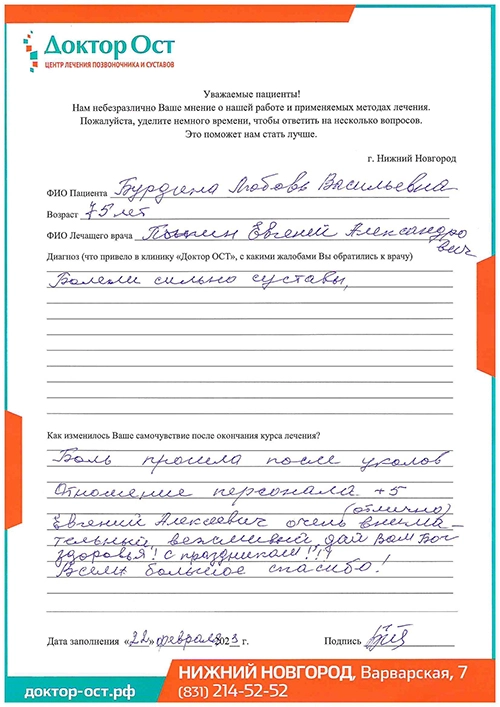 Доктор Ост
ЦЕНТР ЛЕЧЕНИЯ ПОЗВОНОЧНИКА И СУСТАВОВ
Уважаемые пациенты!
Нам небезразлично Ваше мнение о нашей работе и применяемых методах лечения.
Пожалуйста, уделите немного времени, чтобы ответить на несколько вопросов.
Это поможет нам стать лучше.
г. Нижний Новгород
ФИО Пациента Бурдина Любовь Васильевна
Возраст 75 лет
ФИО Лечащего врача Евгений Александро
вич
Диагноз (что привело в клинику «Доктор ОСТ», с какими жалобами Вы обратились к врачу)
Болели сильно суставы,
Как изменилось Ваше самочувствие после окончания курса лечения?
Боль прошла после уколов
Отношение персонала +5
(отлично)
Евгений Алексеевич очень внима-
тельный, вежливый дай Вам Бог
здоровья! С праздником!!!
Всем большое спасибо!
Дата заполнения «22» февраля 2023 г. Подпись
доктор-ост.рф
НИЖНИЙ НОВГОРОД, Варварская, 7
(831) 214-52-52